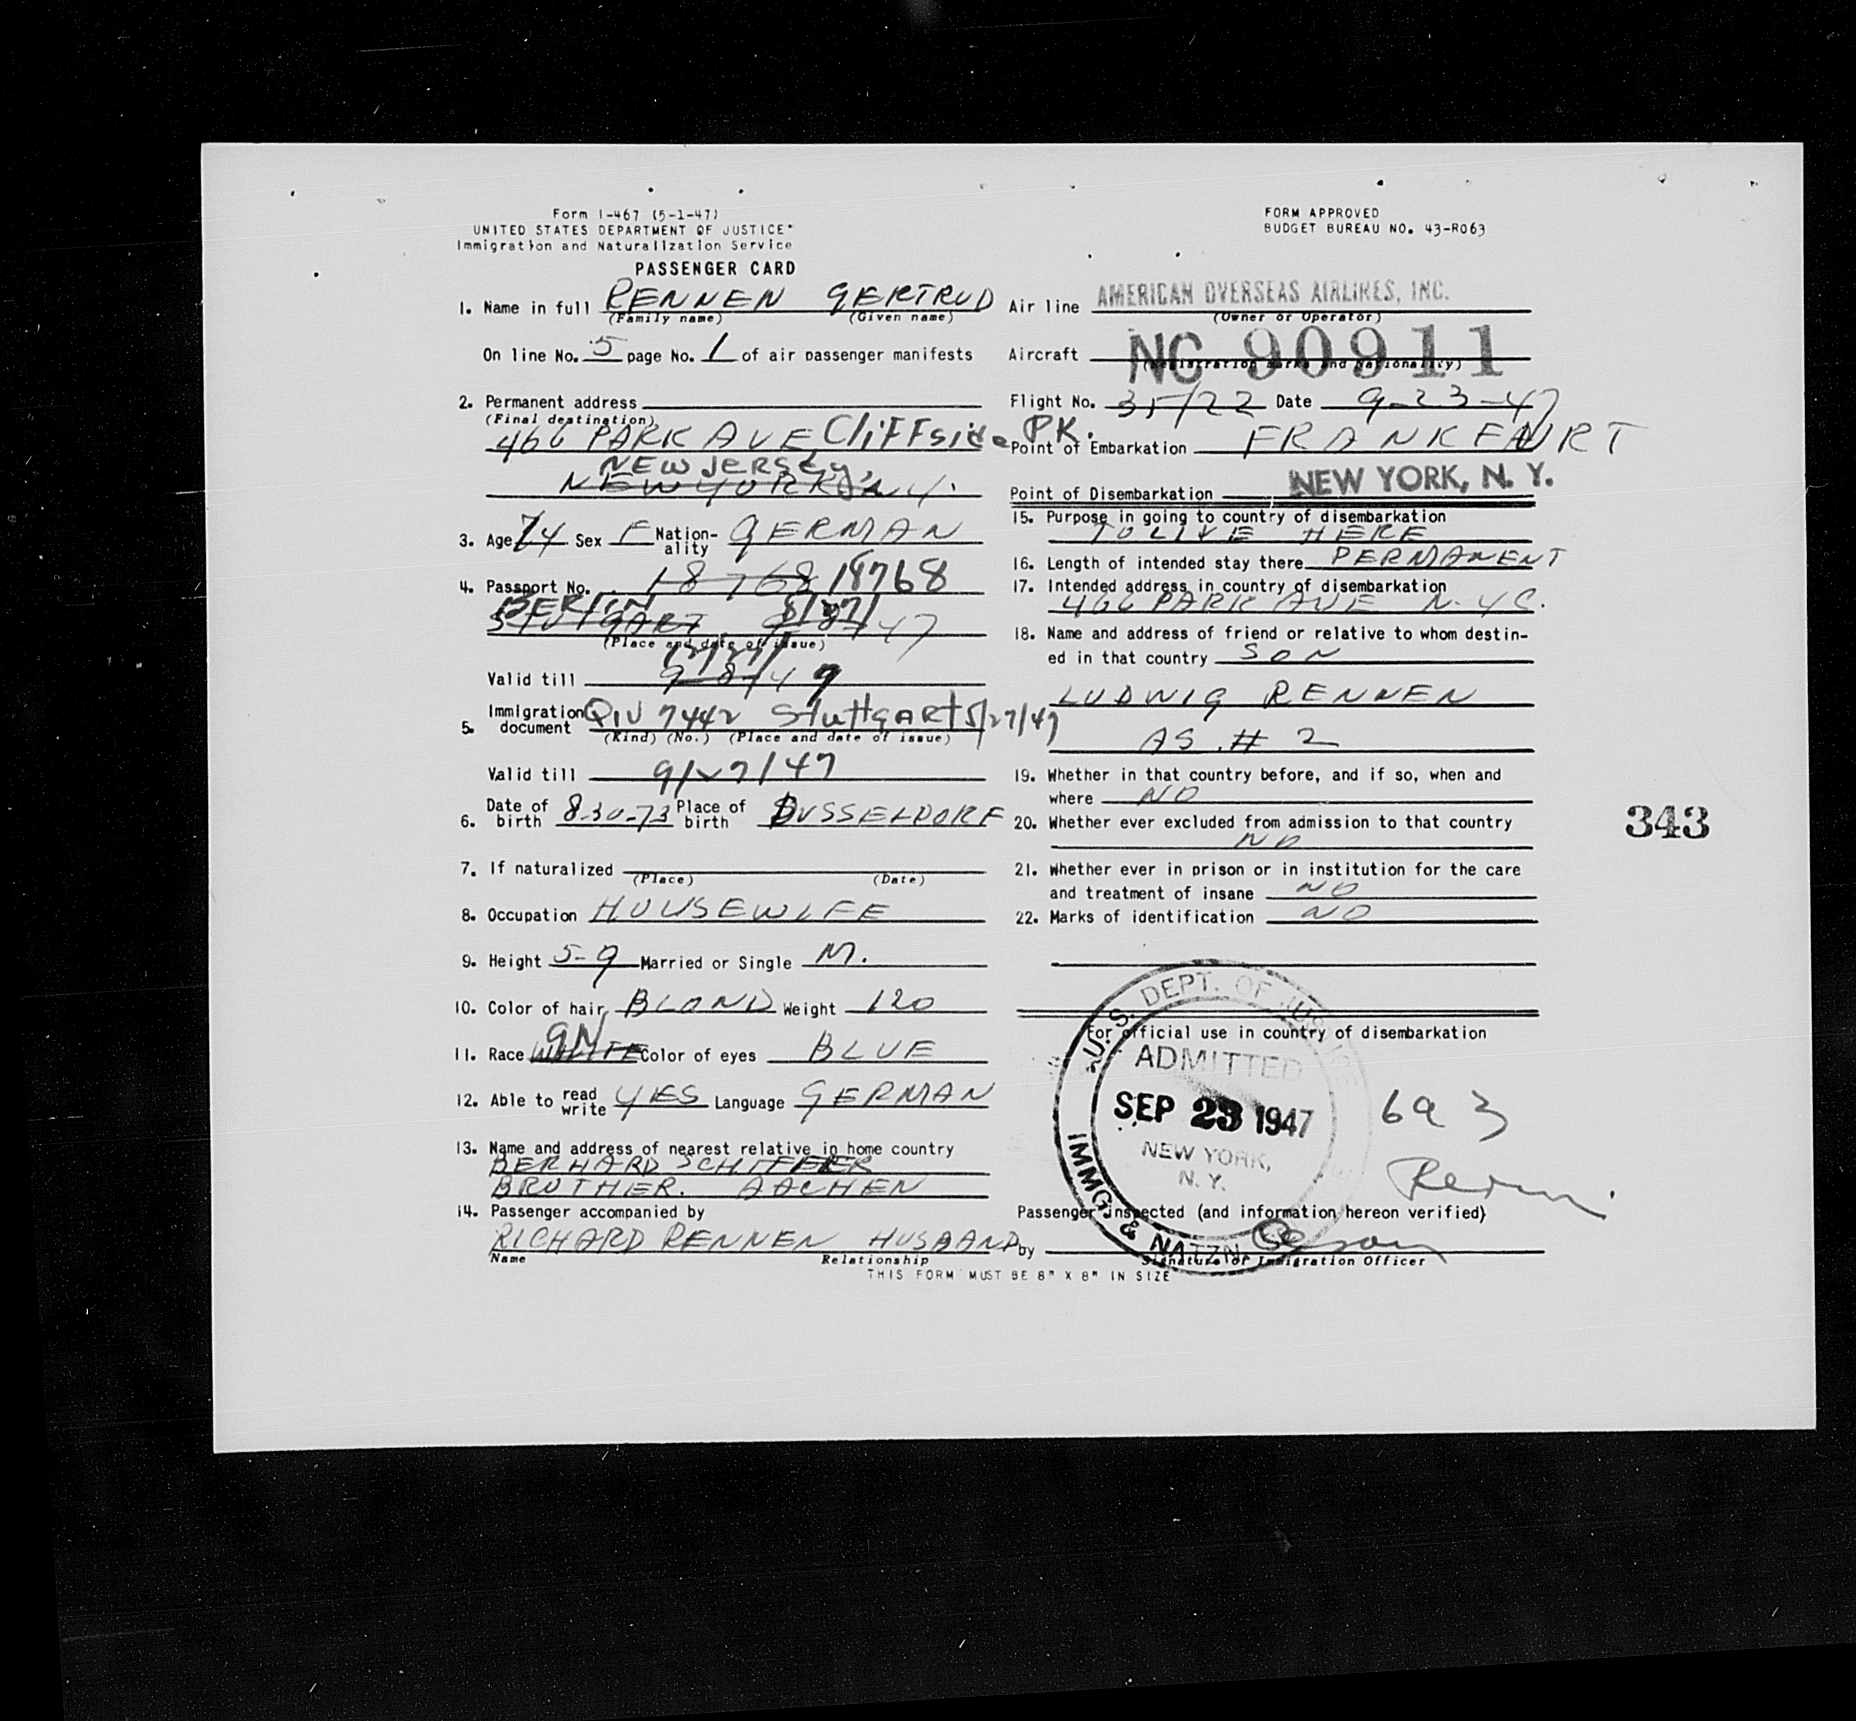 Form I-467 (5-1-47)
UNITED STATES DEPARTMENT OF JUSTICE
Immigration and Naturalization Service
FORM APPROVED
BUDGET BUREAU NO. 43-R063
PASSENGER CARD
1. Name in full RENNEN GERTRUD
(Family name) (Given name)
On line No. 5 page No. 1 of air passenger manifests
2. Permanent address
(Final destination)
466 PARK AVE Cliffside PK.
NEW JERSEY
NEW YORK N.Y.
3. Age 74 Sex F Nation-ality GERMAN
4. Passport No. 18768 18768
BERLIN
STUTGART
(Place and date of issue)
Valid till
5. Immigration document QIV 7442 STUTTGART 5/27/47
(Kind) (No.) (Place and date of issue)
Valid till 9/27/47
6. Date of birth 8-30-73 Place of birth DUSSELDORF
7. If naturalized
(Place) (Date)
8. Occupation HOUSEWIFE
9. Height 5-9 Married or Single M.
10. Color of hair BLOND Weight 120
GN
11. Race WHITE Color of eyes BLUE
12. Able to read write YES Language GERMAN
13. Name and address of nearest relative in home country
BERHARD SCHIFFER
BROTHER. AACHEN
14. Passenger accompanied by
RICHARD RENNEN HUSBAND
Name Relationship
Air line AMERICAN OVERSEAS AIRLINES, INC.
(Owner or Operator)
Aircraft NC 90911
(Registration marks and Nationality)
Flight No. 35/22 Date 9-23-47
Point of Embarkation FRANKFURT
Point of Disembarkation NEW YORK, N. Y.
15. Purpose in going to country of disembarkation
TO LIVE HERE
16. Length of intended stay there PERMANENT
17. Intended address in country of disembarkation
466 PARK AVE N.Y.C.
18. Name and address of friend or relative to whom destin-
ed in that country SON
LUDWIG RENNEN
AS # 2
19. Whether in that country before, and if so, when and
where NO
20. Whether ever excluded from admission to that country
NO
21. Whether ever in prison or in institution for the care
and treatment of insane NO
22. Marks of identification NO
343
For official use in country of disembarkation
U.S. DEPT. OF JUSTICE
ADMITTED
SEP 23 1947
NEW YORK,
N. Y.
IMMG. & NATZN.
6a 3
Passenger inspected (and information hereon verified)
by
Signature of Immigration Officer
THIS FORM MUST BE 8" X 8" IN SIZE